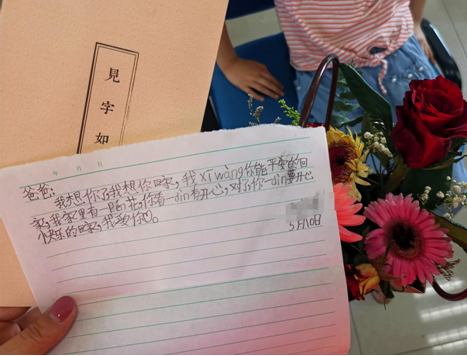 見字如
年 月 日
爸爸:
我想你了我想你回家,我xī wàng你能平安的回
家,我家里有一pén花,你看一din要开心,对了你一din要开心
快乐的回家,我爱你。
5月10日